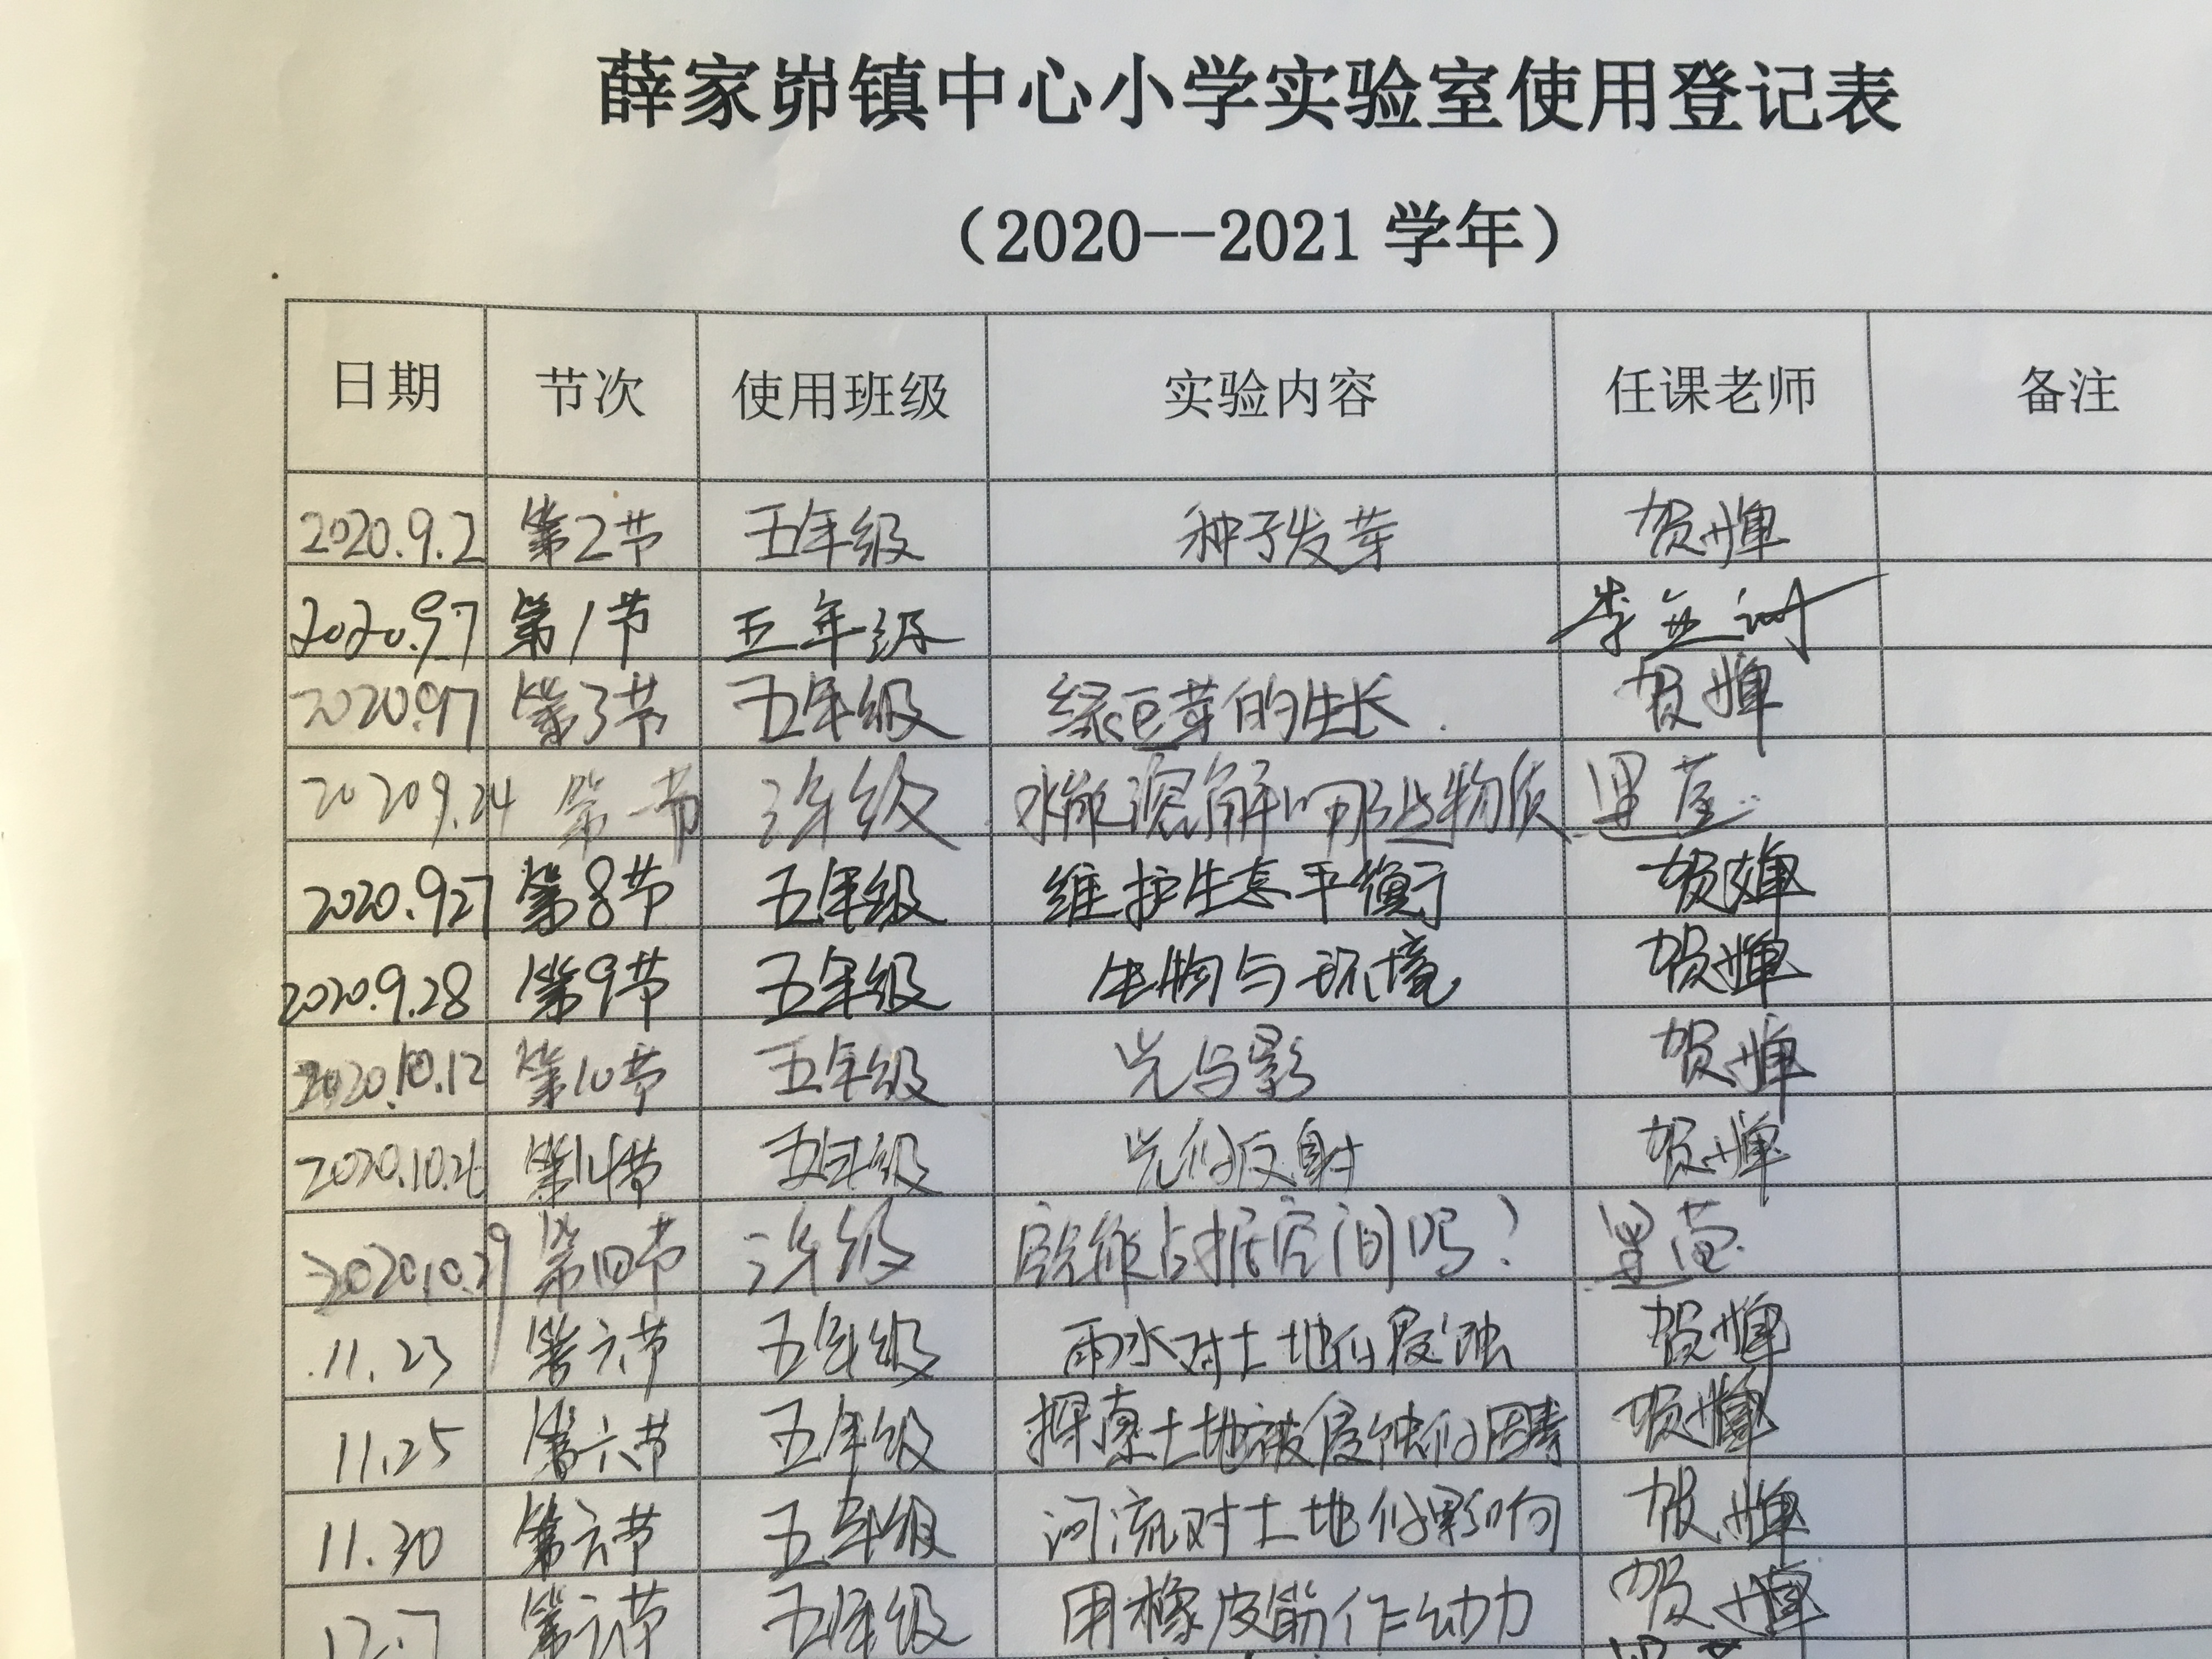 薛家峁镇中心小学实验室使用登记表
（2020--2021 学年）
日期 节次 使用班级 实验内容 任课老师 备注
2020.9.2 第2节 五年级 种子发芽 贺
2020.9.7 第1节 五年级 李
2020.9.7 第3节 五年级 绿豆芽的生长. 贺
2020 9.24 第一节 三年级 水能溶解哪些物质
2020.9.27 第8节 五年级 维护生态平衡 贺
2020.9.28 第9节 五年级 生物与环境 贺
2020.10.12 第10节 五年级 光与影 贺
2020.10.26 第14节 五年级 光的反射 贺
2020.10.29 第四节 三年级 占据空间吗？
11.23 第六节 五年级 雨水对土地的侵蚀 贺
11.25 第六节 五年级 探索土地被侵蚀的因素 贺
11.30 第六节 五年级 河流对土地的影响 贺
12.7 第六节 五年级 用橡皮筋作动力 贺